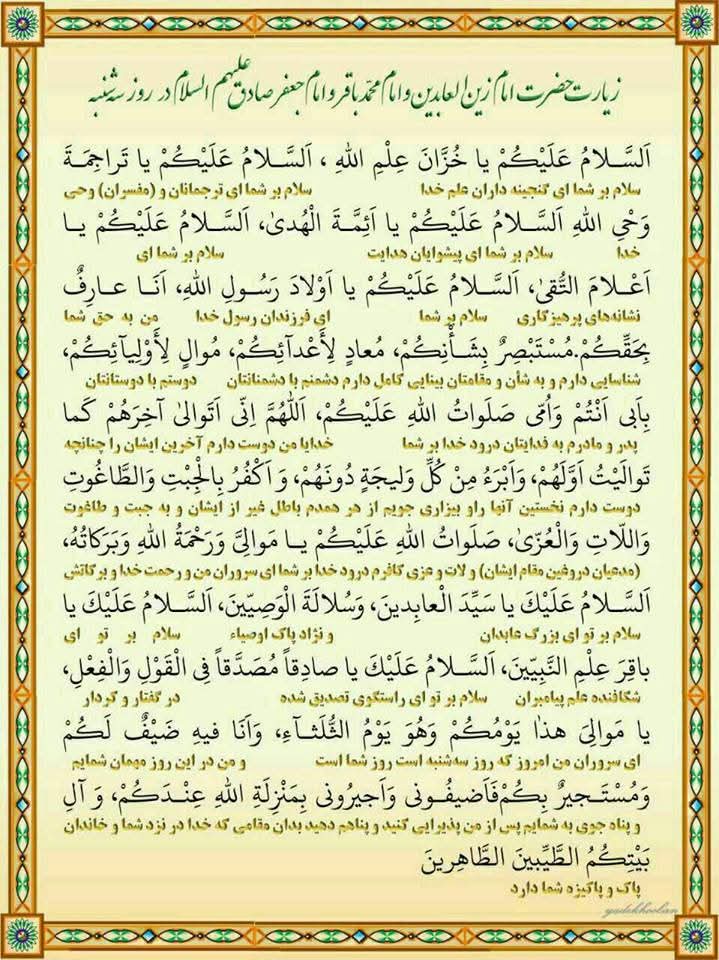 زیارت حضرت امام زین العابدین و امام محمد باقر و امام جعفر صادق علیهم السلام در روز سه شنبه
اَلسَّلامُ عَلَيْكُمْ يا خُزَّانَ عِلْمِ اللهِ ، اَلسَّلامُ عَلَيْكُمْ يا تَراجِمَةَ
سلام بر شما ای گنجینه داران علم خدا سلام بر شما ای ترجمانان و (مفسران) وحی
وَحْيِ اللهِ اَلسَّلامُ عَلَيْكُمْ يا اَئِمَّةَ الْهُدىٰ، اَلسَّلامُ عَلَيْكُمْ يا
خدا سلام بر شما ای پیشوایان هدایت سلام بر شما ای
اَعْلامَ التُّقىٰ، اَلسَّلامُ عَلَيْكُمْ يا اَوْلادَ رَسُولِ اللهِ، اَنَا عارِفٌ
نشانه‌های پرهیزگاری سلام بر شما ای فرزندان رسول خدا من به حق شما
بِحَقِّكُمْ.مُسْتَبْصِرٌ بِشَأْنِكُمْ، مُعادٍ لِأَعْدآئِكُمْ، مُوالٍ لِأَوْلِيآئِكُمْ،
شناسایی دارم و به شأن و مقامتان بینایی کامل دارم دشمنم با دشمنانتان دوستم با دوستانتان
بِاَبى اَنْتُمْ وَاُمّى صَلَواتُ اللهِ عَلَيْكُمْ، اَللهُمَّ اِنّى اَتَوالىٰ آخِرَهُمْ كَما
پدر و مادرم به فدایتان درود خدا بر شما خدایا من دوست دارم آخرین ایشان را چنانچه
تَوالَيْتُ اَوَّلَهُمْ، وَاَبْرَءُ مِنْ كُلِّ وَليجَةٍ دُونَهُمْ، وَ اَكْفُرُ بِالْجِبْتِ وَالطَّاغُوتِ
دوست دارم نخستین آنها راو بیزاری جویم از هر همدم باطل غیر از ایشان و به جبت و طاغوت
وَاللّاتِ وَالْعُزّىٰ، صَلَواتُ اللهِ عَلَيْكُمْ يا مَوالِيَّ وَرَحْمَةُ اللهِ وَبَرَكاتُهُ،
(مدعیان دروغین مقام ایشان) و لات و عزی کافرم درود خدا بر شما ای سروران من و رحمت خدا و برکاتش
اَلسَّلامُ عَلَيْكَ يا سَيِّدَ الْعابِدينَ، وَسُلالَةَ الْوَصِيّينَ، اَلسَّلامُ عَلَيْكَ يا
سلام بر تو ای بزرگ عابدان و نژاد پاک اوصیاء سلام بر تو ای
باقِرَ عِلْمِ النَّبِيّينَ، اَلسَّلامُ عَلَيْكَ يا صادِقاً مُصَدَّقاً فِى الْقَوْلِ وَالْفِعْلِ،
شکافنده علم پیامبران سلام بر تو ای راستگوی تصدیق شده در گفتار و کردار
يا مَوالِىَ هذٰا يَوْمُكُمْ وَهُوَ يَوْمُ الثُّلَثآءِ، وَاَنَا فيهِ ضَيْفٌ لَكُمْ
ای سروران من امروز که روز سه‌شنبه است روز شما است و من در این روز مهمان شمایم
وَمُسْتَجيرٌ بِكُمْ‌فَاَضيفُونى وَاَجيرُونى بِمَنْزِلَةِ اللهِ عِنْدَكُمْ، وَ آلِ
و پناه جوی به شمایم پس از من پذیرایی کنید و پناهم دهید بدان مقامی که خدا در نزد شما و خاندان
بَيْتِكُمُ الطَّيِّبينَ الطَّاهِرينَ
پاک و پاکیزه شما دارد
yadekhoolan